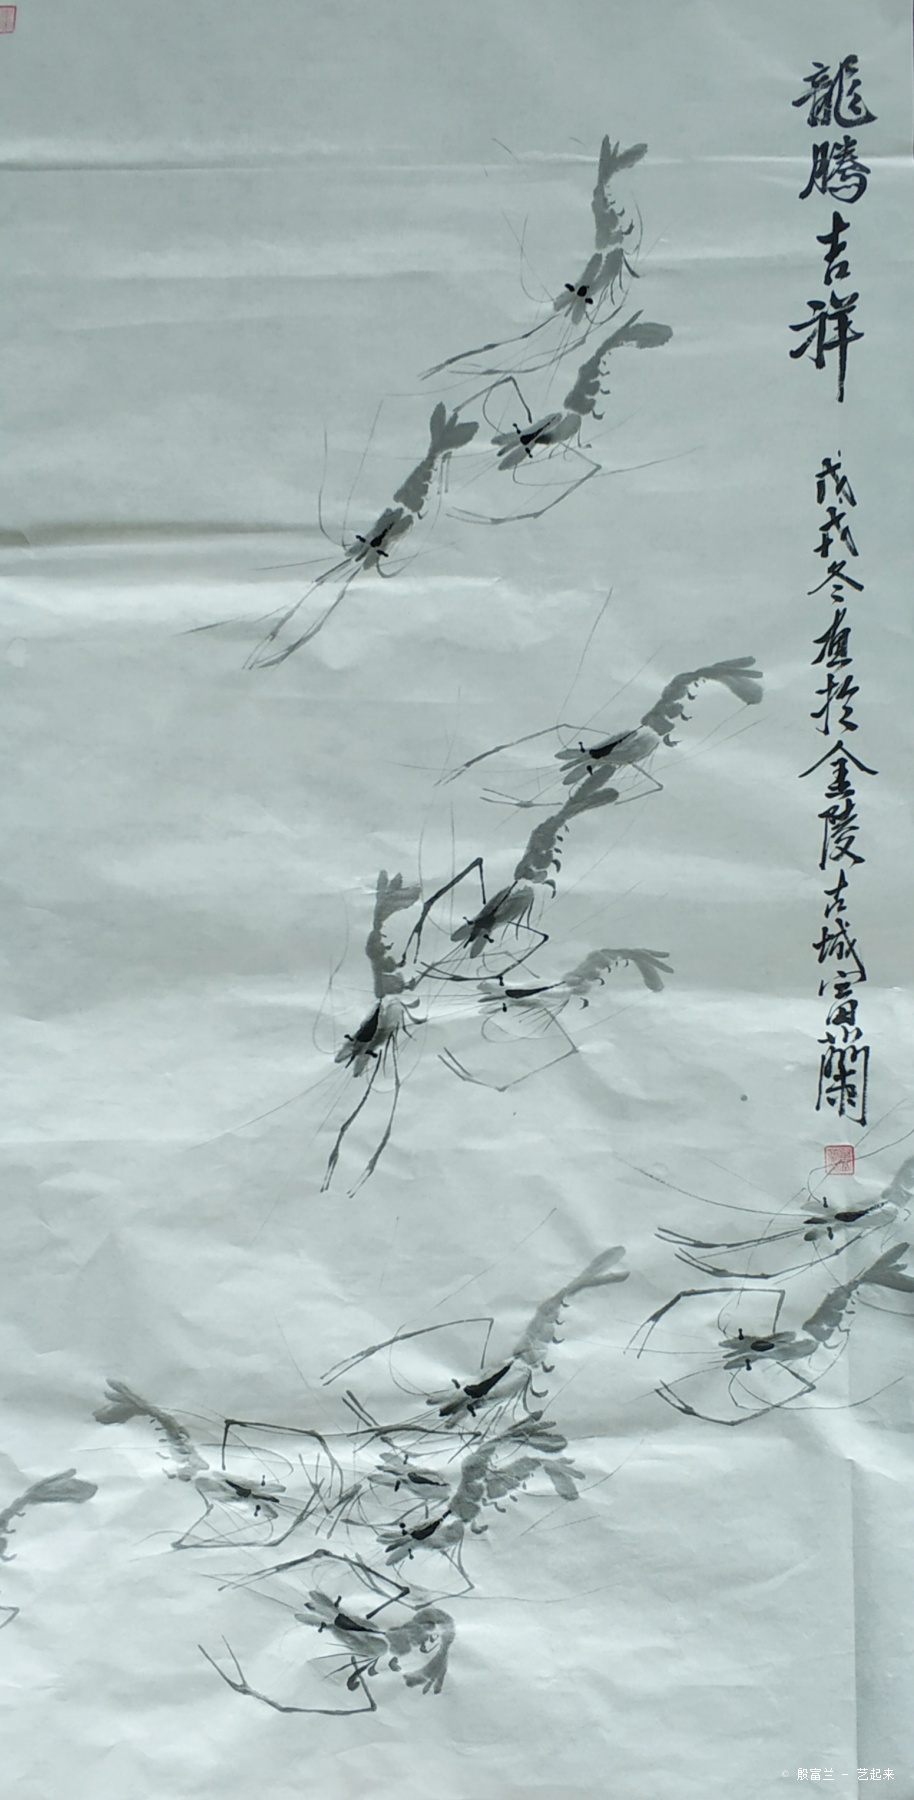 龍騰吉祥
戊戌冬畫於金陵古城富蘭
© 殷富兰 - 艺起来